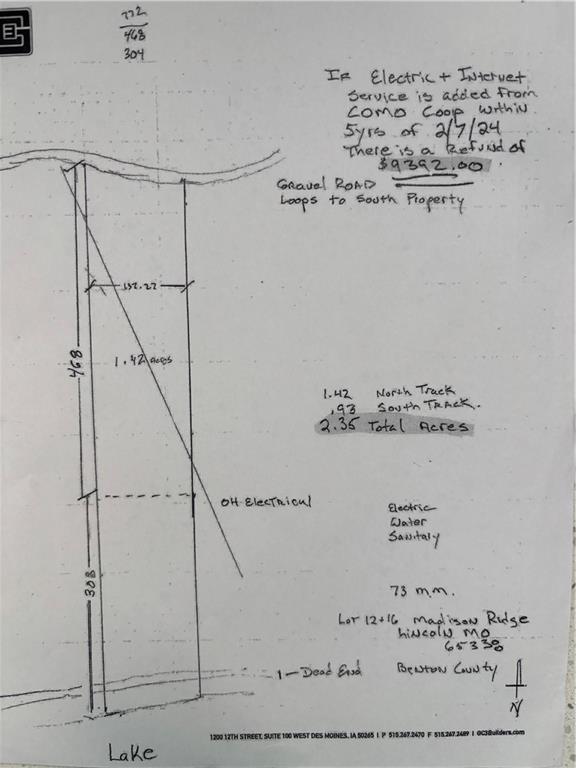 772
468
304
IF Electric + Internet
Service is added from
COMO COOP within
5yrs of 2/7/24
There is a Refund of
$9392.00
Gravel ROAD
Loops to South Property
132.22
1.42 acres
468
1.42 North Track
.93 South TRACK.
2.35 Total Acres
OH Electrical
Electric
Water
Sanitary
308
73 m.m.
Lot 12+16 Madison Ridge
Lincoln MO
65338
1-Dead End
Benton County
N
1200 12TH STREET, SUITE 100 WEST DES MOINES, IA 50265 | P 515.267.2470 F 515.267.2489 | GC3Builders.com
Lake